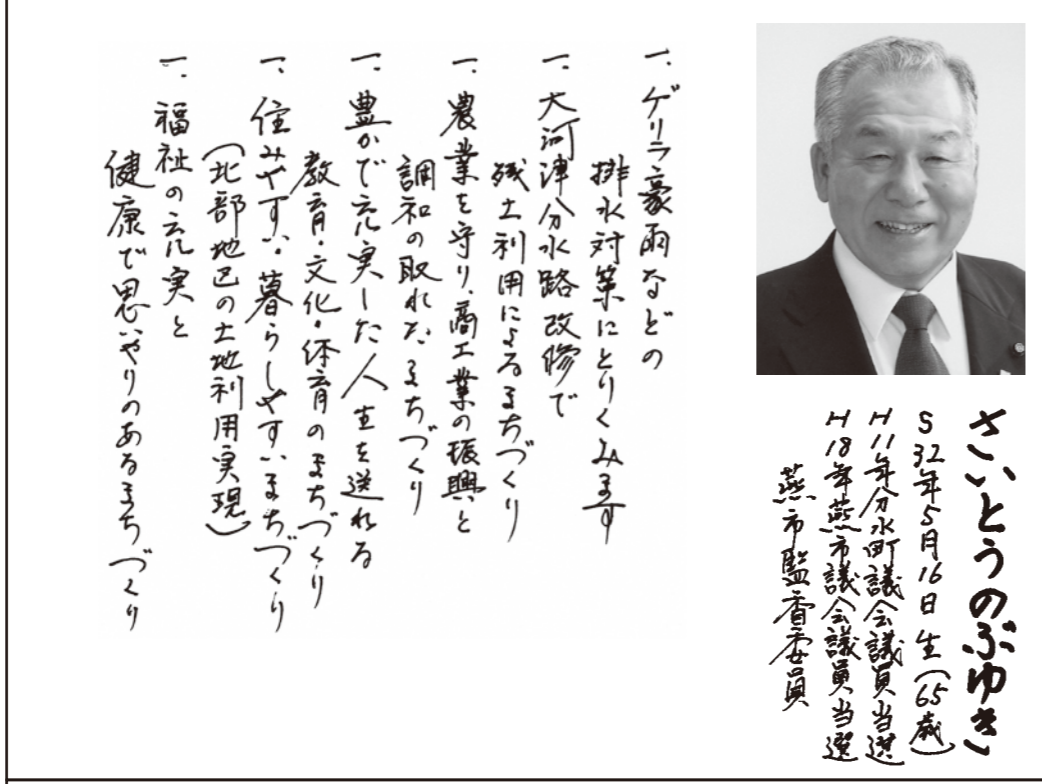 さいとうのぶゆき
S32年5月16日生(65歳)
H11年分水町議会議員当選
H18年燕市議会議員当選
燕市監査委員
一、ゲリラ豪雨などの
排水対策にとりくみます
一、大河津分水路改修で
残土利用によるまちづくり
一、農業を守り、商工業の振興と
調和の取れたまちづくり
一、豊かで充実した人生を送れる
教育・文化・体育のまちづくり
一、住みやすい・暮らしやすいまちづくり
(北部地区の土地利用実現)
一、福祉の充実と
健康で思いやりのあるまちづくり